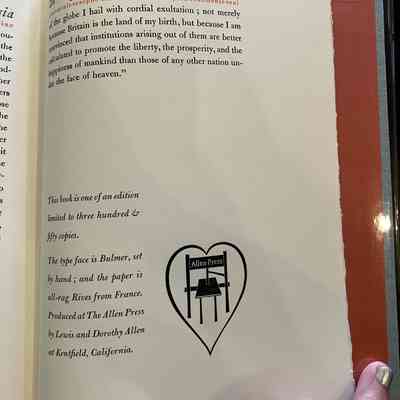 sia
of the globe I hail with cordial exultation ; not merely
because Britain is the land of my birth, but because I am
convinced that institutions arising out of them are better
calculated to promote the liberty, the prosperity, and the
happiness of mankind than those of any other nation un-
der the face of heaven.”
the
the
This book is one of an edition
limited to three hundred &
fifty copies.
The type face is Bulmer, set
by hand ; and the paper is
all-rag Rives from France.
Produced at The Allen Press
by Lewis and Dorothy Allen
at Kentfield, California.
Allen Press